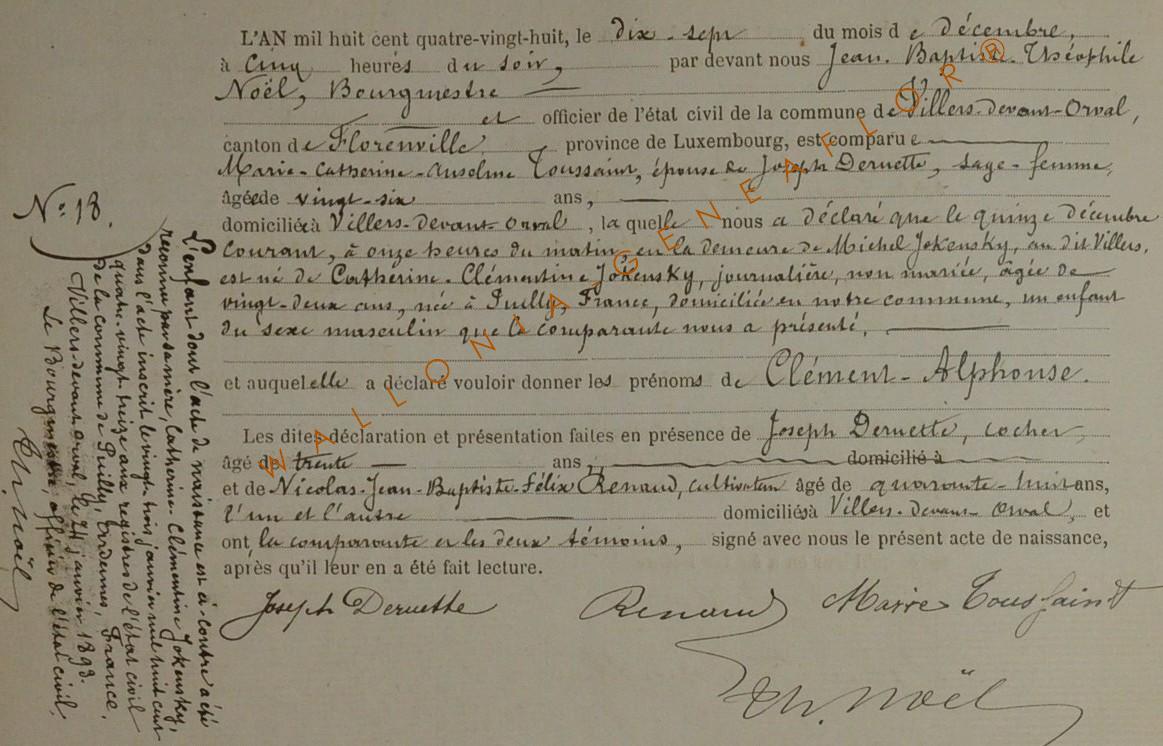 L'AN mil huit cent quatre-vingt-huit, le dix-sept du mois de décembre,
à cinq heures du soir, par devant nous Jean-Baptiste-Théophile
Noël, Bourgmestre
et officier de l'état civil de la commune de Villers-devant-Orval,
canton de Florenville province de Luxembourg, est comparue
Marie-Catherine-Anselme Toussaint, épouse de Joseph Deruette, sage-femme,
âgée de vingt-six ans,
domiciliée à Villers-devant-Orval, la quelle nous a déclaré que le quinze décembre
courant, à onze heures du matin, en la demeure de Michel Jokensky, au dit Villers,
est né de Catherine-Clémentine Jokensky, journalière, non mariée, âgée de
vingt-deux ans, née à Puilly, France, domiciliée en notre commune, un enfant
du sexe masculin que la comparante nous a présenté,
et auquel elle a déclaré vouloir donner les prénoms de Clément-Alphonse.
Les dites déclaration et présentation faites en présence de Joseph Deruette, cocher,
âgé de trente ans, domicilié à
et de Nicolas-Jean-Baptiste-Félix Renaud, cultivateur âgé de quarante-huit ans,
l'un et l'autre domiciliés à Villers-devant-Orval, et
ont, la comparante et les deux témoins, signé avec nous le présent acte de naissance,
après qu'il leur en a été fait lecture.
Joseph Deruette Renaud Marie Toussaint
Th. Noël
N° 18.
L'enfant dont l'acte de naissance est ci-contre a été
reconnu par sa mère, Catherine-Clémentine Jokensky,
dans l'acte inscrit le vingt-trois janvier mil huit cent
quatre-vingt treize aux registres de l'état civil
de la commune de Puilly, Ardennes, France.
Villers-devant-Orval, le 24 janvier 1893.
Le Bourgmestre, officier de l'état civil,
Th. Noël
WALLONIA GENEAFLOR ®